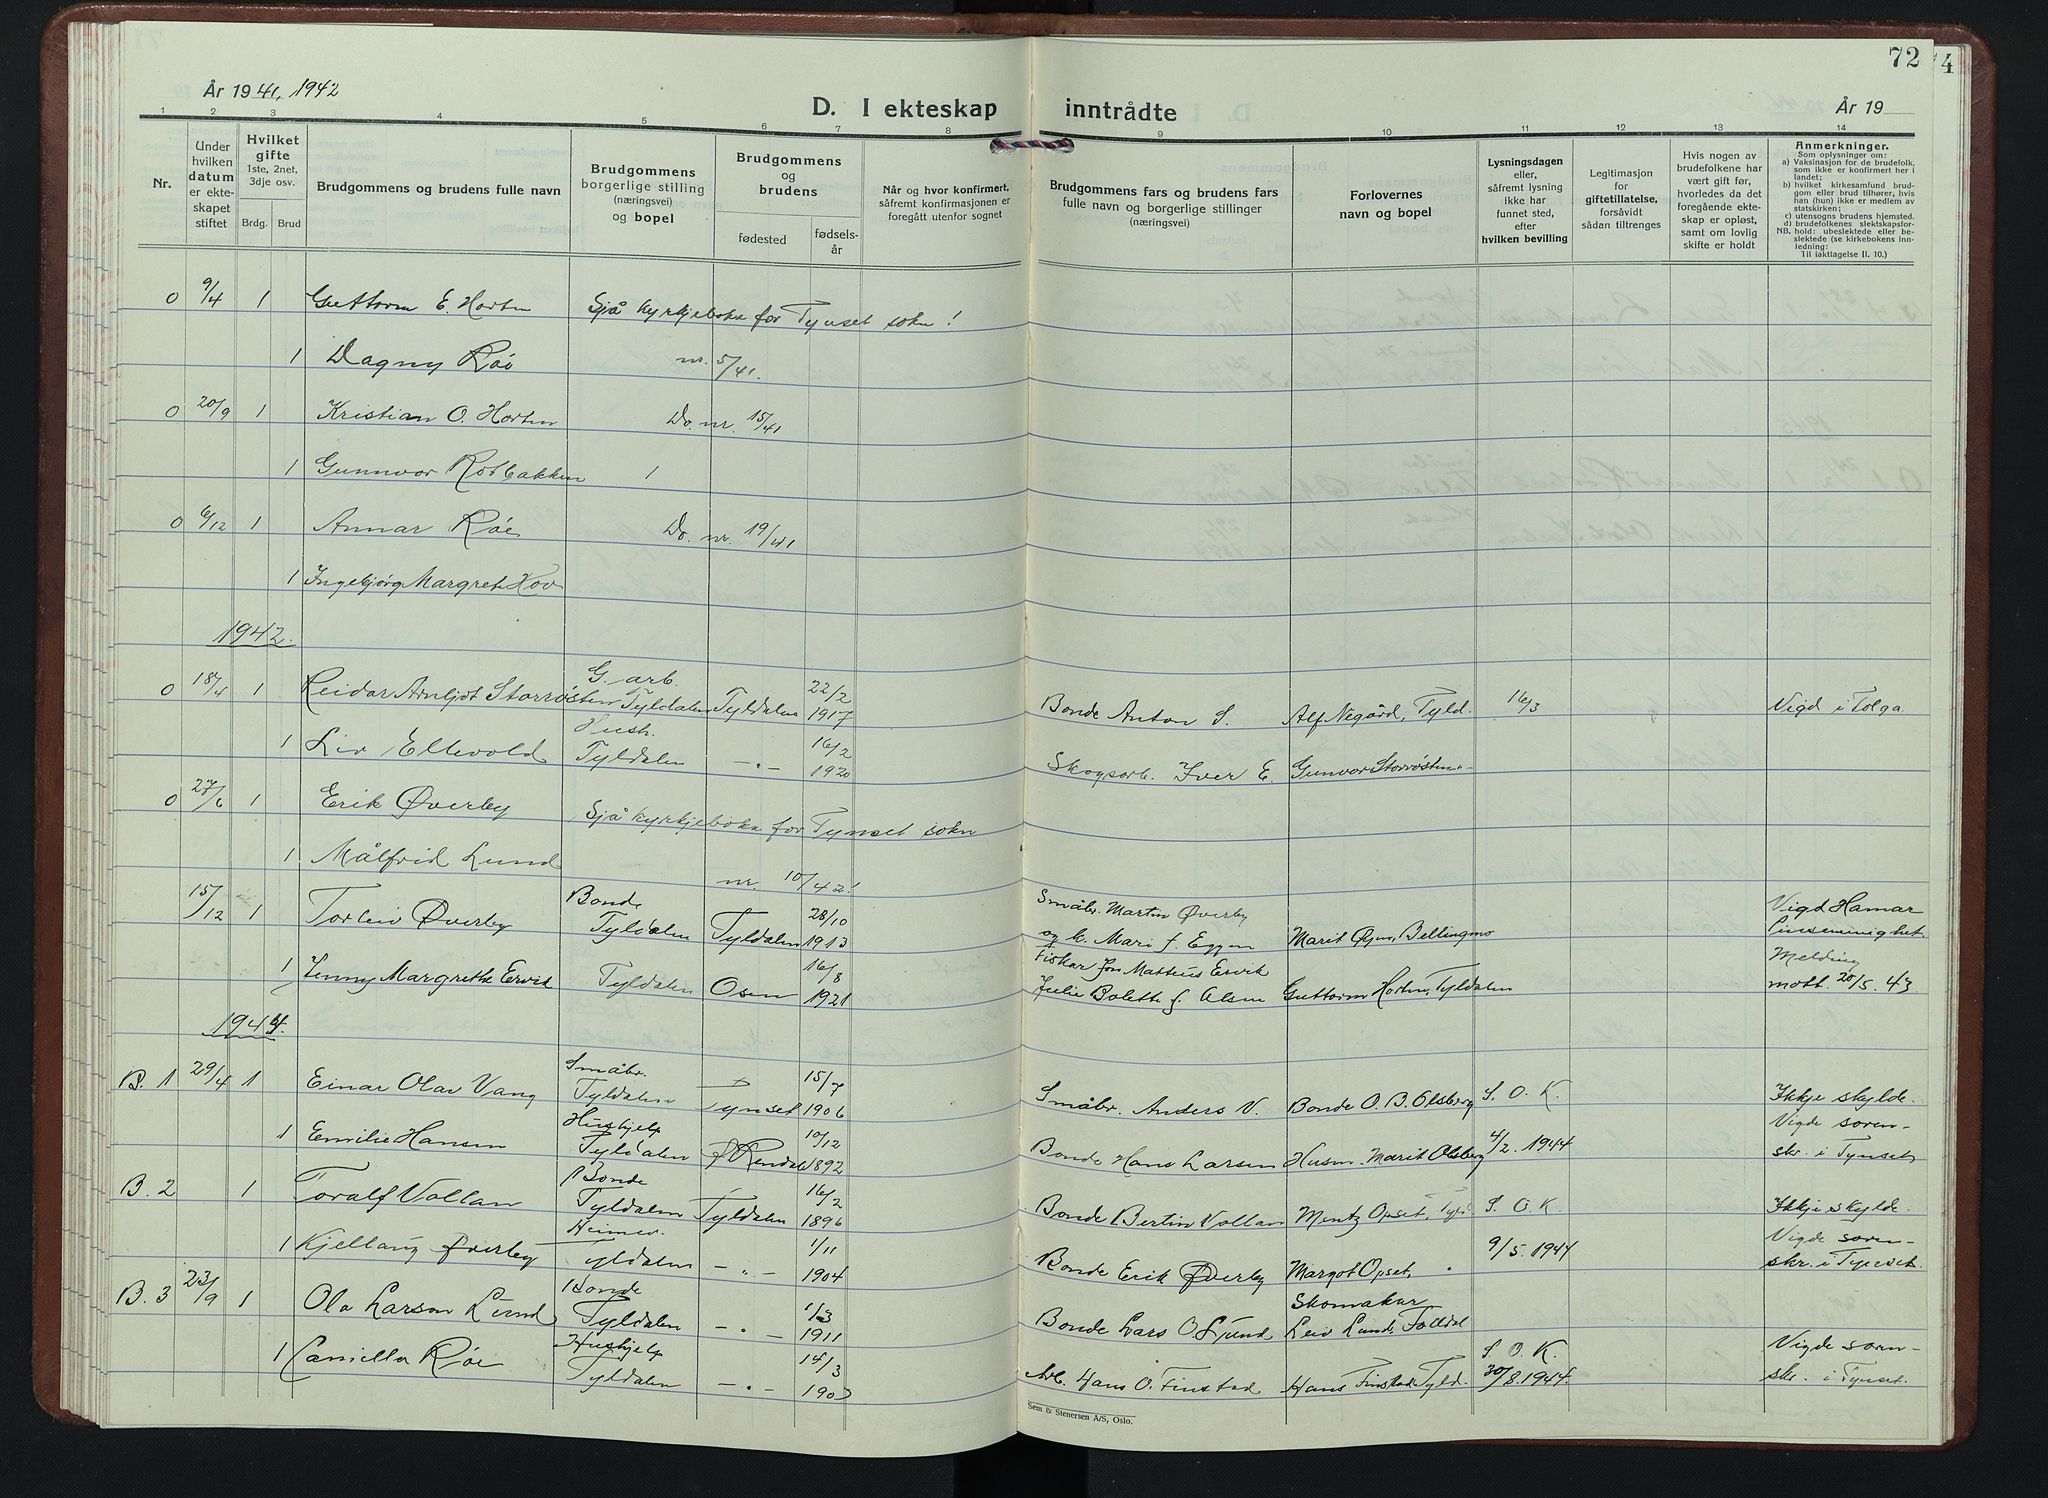 År 1941, 1942
D. I ekteskap inntrådte
72
År 19
1 2 3 4 5 6 7 8 9 10 11 12 13 14
Nr.
Under hvilken datum er ekteskapet stiftet
Hvilket gifte 1ste, 2net, 3dje osv.
Brdg. Brud
Brudgommens og brudens fulle navn
Brudgommens borgerlige stilling (næringsvei) og bopel
Brudgommens og brudens
fødested
fødselsår
Når og hvor konfirmert, såfremt konfirmasjonen er foregått utenfor sognet
Brudgommens fars og brudens fars fulle navn og borgerlige stillinger (næringsvei)
Forlovernes navn og bopel
Lysningsdagen eller, såfremt lysning ikke har funnet sted, efter hvilken bevilling
Legitimasjon for giftetillatelse, forsåvidt sådan tiltrenges
Hvis nogen av brudefolkene har vært gift før, hvorledes da det foregående ekteskap er opløst, samt om lovlig skifte er holdt
Anmerkninger.
Som oplysninger om:
a) Vaksinasjon for de brudefolk, som ikke er konfirmert her i landet;
b) hvilket kirkesamfund brudgom eller brud tilhører, hvis han (hun) ikke er medlem av statskirken;
c) utensogns brudens hjemsted.
d) brudefolkenes slektskapsforhold: ubeslektede eller beslektede (se kirkebokens innledning:
NB.
Til iakttagelse II. 10.)
0 9/4 1 Guttorm E. Horten Sjå kyrkjeboka for Tynset sokn!
1 Dagny Röe nr. 5/41.
0 20/9 1 Kristian O. Horten Do. nr. 15/41
1 Gunnvor Rötbakken 1
0 6/12 1 Annar Röe Do. nr. 19/41
1 Ingebjörg Margrete Hov
1942.
0 18/4 1 Reidar Arnljot Storrösten G. arb. Tyldalen Tyldalen 22/2 1917 Bonde Anton S. Alf Negård, Tyld. 16/3 Vigd i Tolga
1 Liv Ellevold Hush. Tyldalen -"- 16/2 1920 Skogsarb. Iver E. Gunvor Storrösten "-
0 27/6 1 Erik Øverby Sjå kyrkjeboka for Tynset sokn
1 Målfrid Lund nr. 10/42!
15/12 1 Torleiv Øverby Bonde Tyldalen Tyldalen 28/10 1913 Småbr. Martin Øverby og k. Mari f. Eggen Marit Øien, Bellingmo Vigd Hamar
1 Jenny Margrethe Ervik Tyldalen Osen 16/8 1921 Fiskar Jon Matteus Ervik Julie Bolette f. Olsen Guttorm Horten, Tyldalen Melding mott. 20/5. 43
1944.
B. 1 29/4 1 Einar Olav Vang Småbr. Tyldalen Tynset 15/7 1906 Småbr. Anders V. Bonde O. B. Olsberg S. O. K. Ikkje skylde.
1 Emilie Hansen Hushjelp Tyldalen Ø Rendal 10/12 1892 Bonde Hans Larsen Husm. Marit Olsberg 4/2. 1944 Vigde soren- skr. i Tynset
B. 2 1 Toralf Vollan Bonde Tyldalen Tyldalen 16/2 1896 Bonde Bertin Vollan Mentz Opset, Tyld S. O. K. Ikkje skylde.
1 Kjellaug Øverby Heimev. Tyldalen -"- 1/11 1904 Bonde Erik Øverby Margot Opset, " 9/5. 1944 Vigde soren- skr. i Tynset
B. 3 23/9 1 Ola Larsen Lund Bonde Tyldalen -"- 1/3 1911 Bonde Lars O. Lund Skomakar Leiv Lund, Folldal
1 Camilla Röe Hushjelp Tyldalen -"- 14/3 1903 Arb. Hans O. Finstad Hans Finstad, Tyld. S. O. K. 30/8. 1944. Vigde soren- skr. i Tynset.
Sem & Stenersen A/S, Oslo.